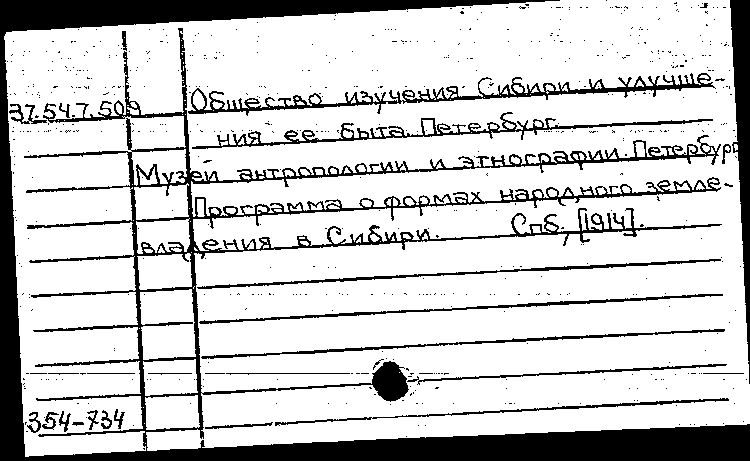 37.54.7.509 Общество изучения Сибири и улучше-
ния ее быта. Петербург.
Музей антропологии и этнографии. Петербург
Программа о формах народного земле-
владения в Сибири. Спб, [1914].
354-734